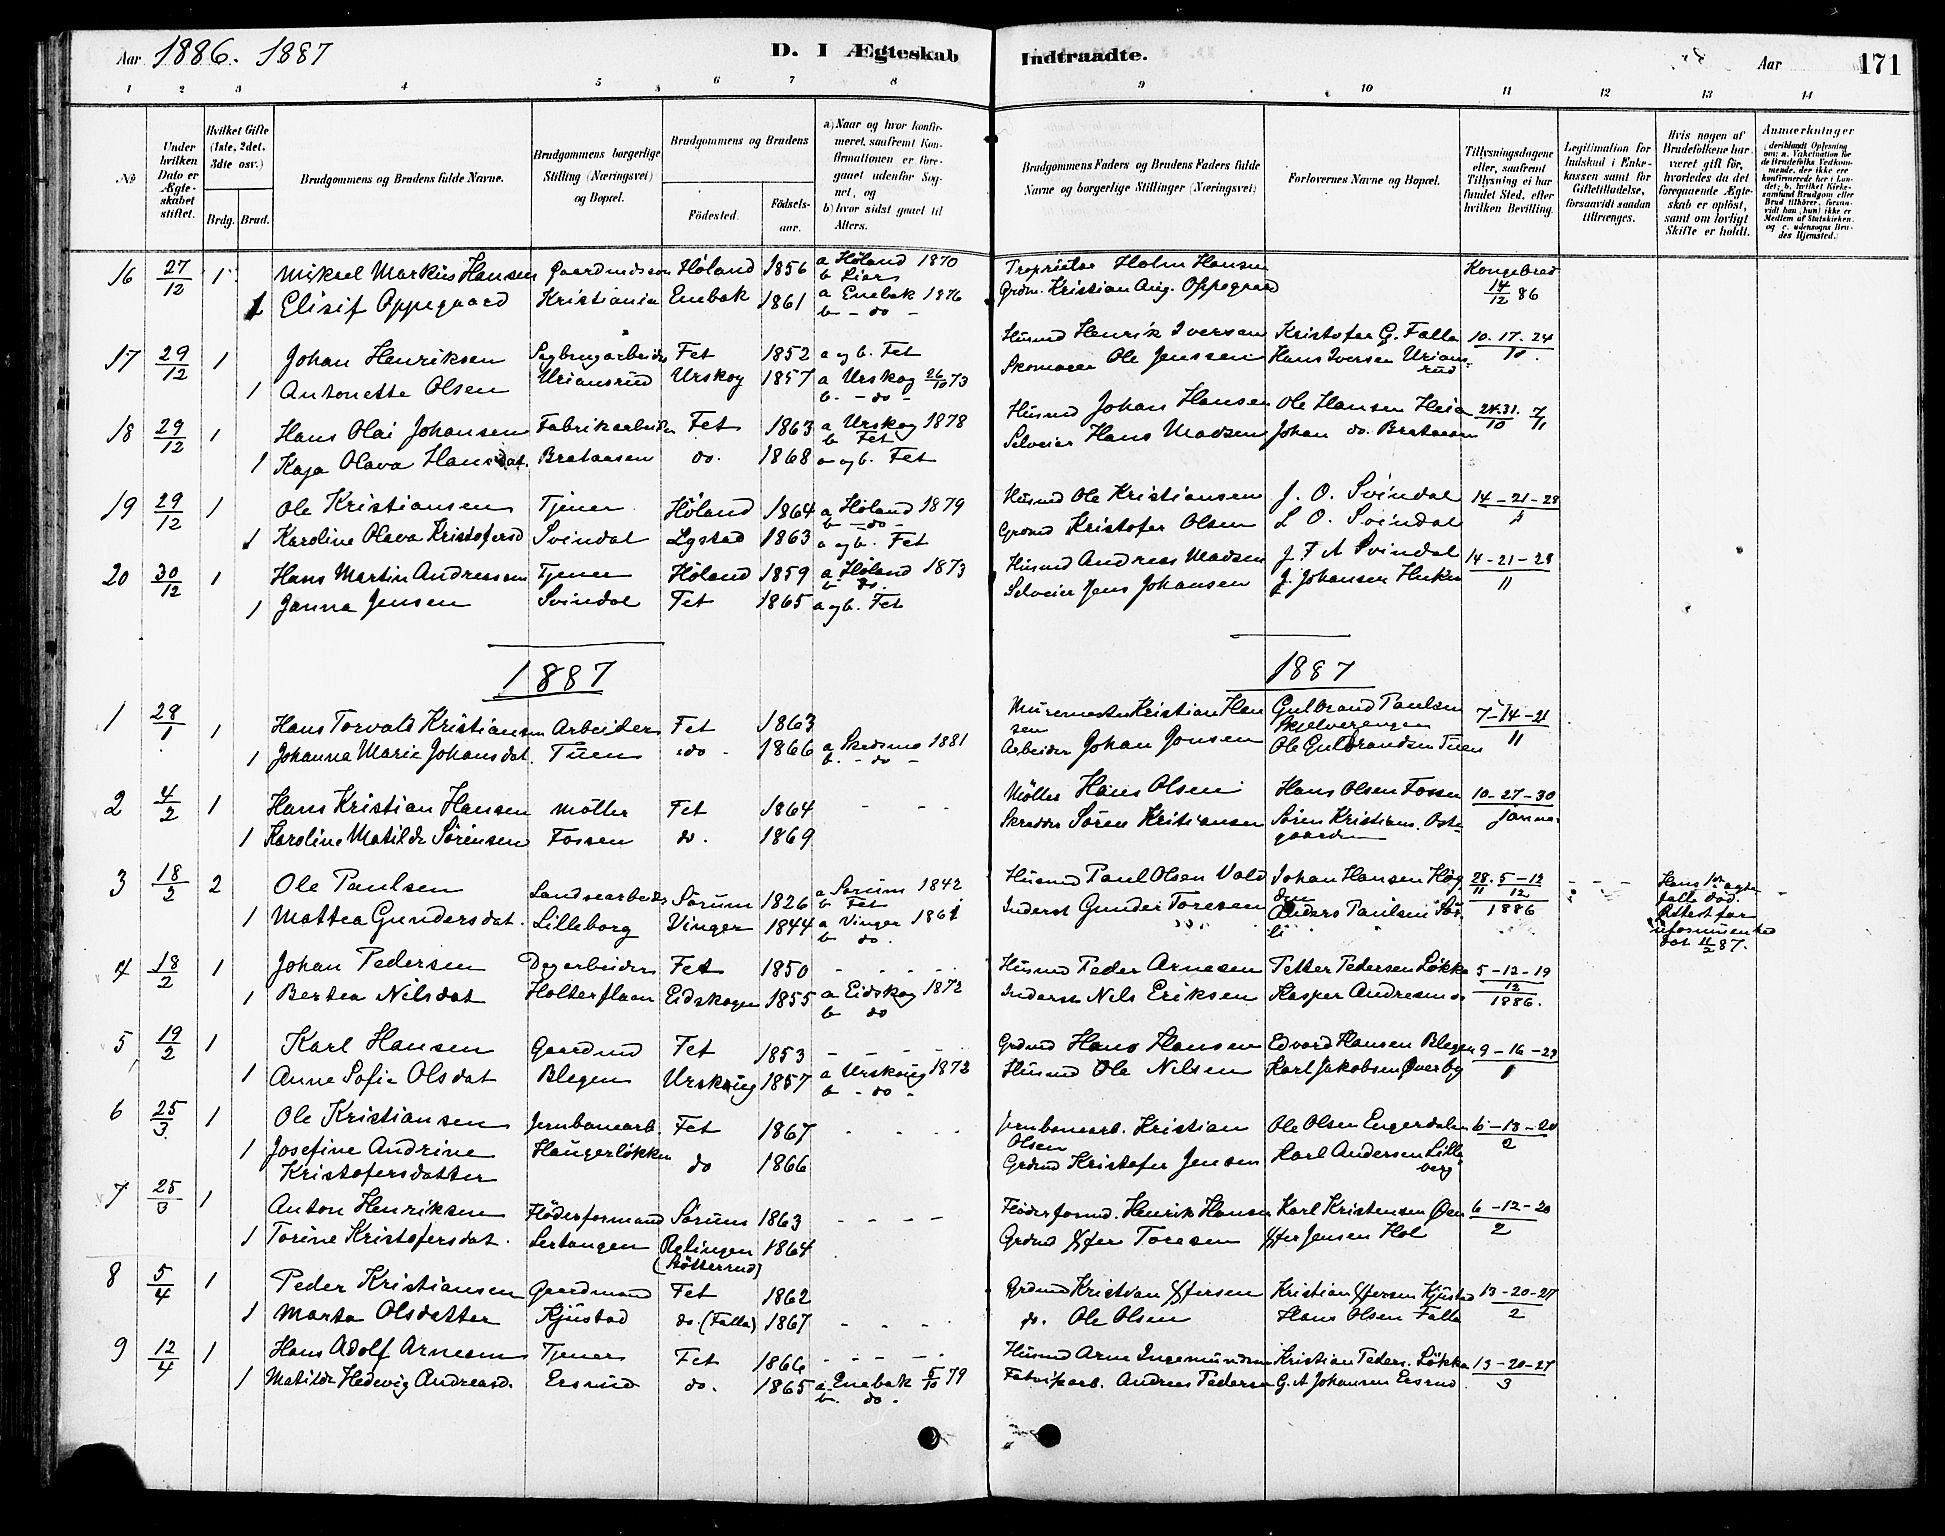 Aar 1886. 1887
D. I Ægteskab Indtraadte.
Aar 171
1 2 3 4 5 6 7 8 9 10 11 12 13 14
No
Under hvilken Dato er Ægteskabet stiftet.
Hvilket Gifte (1ste, 2det, 3die osv.)
Brdg. Brud.
Brudgommens og Brudens fulde Navne.
Brudgommens borgerlige Stilling (Næringsvei) og Bopæl.
Brudgommens og Brudens
Fødested.
Fødselsaar.
a) Naar og hvor konfirmeret, saafremt Konfirmationen er foregaaet udenfor Sognet, og
b) hvor sidst gaaet til Alters.
Brudgommens Faders og Brudens Faders fulde Navne og borgerlige Stillinger (Næringsvei)
Forlovernes Navne og Bopæl.
Tillysningsdagene eller, saafremt Tillysning ei har fundet Sted, efter hvilken Bevilling.
Legitimation for Indskud i Enkekassen samt for Giftetilladelse, forsaavidt saadan tiltrænges.
Hvis nogen af Brudefolkene har været gift før, hvorledes da det foregaaende Ægteskab er opløst, samt om lovligt Skifte er holdt.
Anmærkninger
16 27/12 1 Mikael Markus Hansen Høland 1856 a Høland 1870 Proprietær Holm Hansen Kongebrev
b Lier
1 Elisif Oppegaard Kristiania Enebak 1861 a Enebak 1876 Grdm. Kristian Aug. Oppegaard 14/12 86
b - do -
17 29/12 1 Johan Henriksen Sagbrugarbeider Fet 1852 a og b. Fet Husmd Henrik Iversen Kristofer G. Falla 10. 17. 24/10.
1 Antonette Olsen Uriansrud Urskog 1857 a Urskog 26/10 73 Skomager Ole Jenssen Hans Iversen Uriansrud
b. - do -
18 29/12 1 Hans Olai Johansen Fabrikarbeider Fet 1863 a Urskog 1878 Husmd Johan Hansen Ole Hansen Heia 24.31./10 7/11
b Fet
1 Kaja Olava Hansdat. Brataasen do. 1868 a og b. Fet Selveier Hans Madsen Johan do. Brataasen
19 29/12 1 Ole Kristiansen Tjener Høland 1864 a Høland 1879 Husmd Ole Kristiansen J. O. Svindal 14-21-28
b - do -
1 Karoline Olava Kristofersd Svindal 1863 a og b. Fet Grdmd Kristofer Olsen L O. Svindal
20 30/12 1 Hans Martin Andreassen Tjener Høland 1859 a Høland 1873 Husmd Andreas Madsen J. F A Svindal 14-21-28/11
b do
1 Janna Jensen Svindal Fet 1865 a og b. Fet Selveier Jens Johansen J. Johansen
1887 1887
1 28/1 1 Hans Torvald Kristiansen Arbeider Fet 1863 Murermester Kristian Hansen Gulbrand Paulsen 7-14-21/11
1 Johanna Marie Johansdat. Tuen do 1866 a Skedsmo 1881 Arbeider Johan Jonsen Ole Gulbrandsen Tuen
b. - do -
2 4/2 1 Hans Kristian Hansen Møller Fet 1864 - - - Møller Hans Olsen Hans Olsen Fossen 10-27-30
1 Karoline Matilde Sørensen Fossen do. 1869 Skredder Søren Kristiansen Søren Kristians. Ostegaarden Januar
3 18/2 2 Ole Paulsen Landsearbeider Sørum 1826 a Sørum 1842 Husmd Paul Olsen Vold Johan Hansen Høgden 28/11. 5-12/12
b Fet
1 Mattea Gundersdat. Lilleborg Vinger 1844 a Vinger 1861 Inderst Gunder Toresen Anders Paulsen 1886
b do.
Hans 1ste ægtefalle død. Attest for dat 11/2 87.
4 18/2 1 Johan Pedersen Dagarbeider Fet 1850 - - - - Husmd Peder Arnesen Petter Pedersen Løkka 5-12-19/12
1 Bertea Nilsdat Holterflaen Eidskogen 1855 a Eidskog 1872 Inderst Nils Eriksen Kasper Andresen do 1886.
b do
5 19/2 1 Karl Hansen Gaardmd Fet 1853 - - - - Grdmd Hans Hansen Edvard Hansen Blegen 9-16-23
1 Anne Sofie Olsdat Blegen Urskoug 1857 a Urskoug 1872 Husmd Ole Nilsen Karl Jakobsen Øverby
b - do -
6 25/3 1 Ole Kristiansen Jernbanearb. Fet 1867 - - - Jernbanearb. Kristian Olsen Ole Olsen Engerdalen 6-13-20/2
1 Josefine Andrine Kristofersdatter Haugerløkken do 1866 Grdmd Kristofer Jensen Karl Andersen Lilleberg
7 25/3 1 Anton Henriksen Fløderformand Sørum 1863 - - - - Fløderformd. Henrik Hansen Karl Kristensen Øen 6-12-20/2
1 Torine Kristofersdat. Lertangen Rælingen (Støtterud) 1864 Grdmd Xffer Toresen Xffer Jensen Hol
8 5/4 1 Peder Kristiansen Gaardmand Fet 1862 Grdmd Kristian Xffersen Kristian Xffersen Kjustad 13-20-27/2
1 Marta Olsdatter Kjustad do. (Falla) 1867 - - - - do. Ole Olsen Hans Olsen Falla
9 12/4 1 Hans Adolf Arnesen Tjener Fet 1866 - - - - Husmd Arne Ingemundsen Kristian Peders. Løkka 13-20-27/3
1 Matilde Hedevig Andreasd. Ersrud do. 1865 a Enebak 5/10 79 Fabrikarb. Andreas Pedersen G. A Johansen Ersrud
b. do.